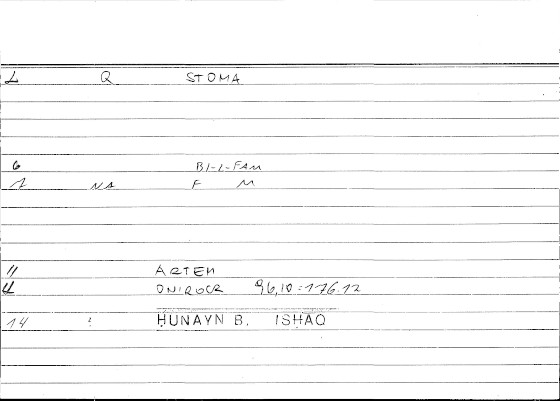 L Q STOMA
6 BI-L-FAM
1 NA F M
11 ARTEM
ONIROCR 96,10=176.12
14 : ḤUNAYN B. ISḤAQ